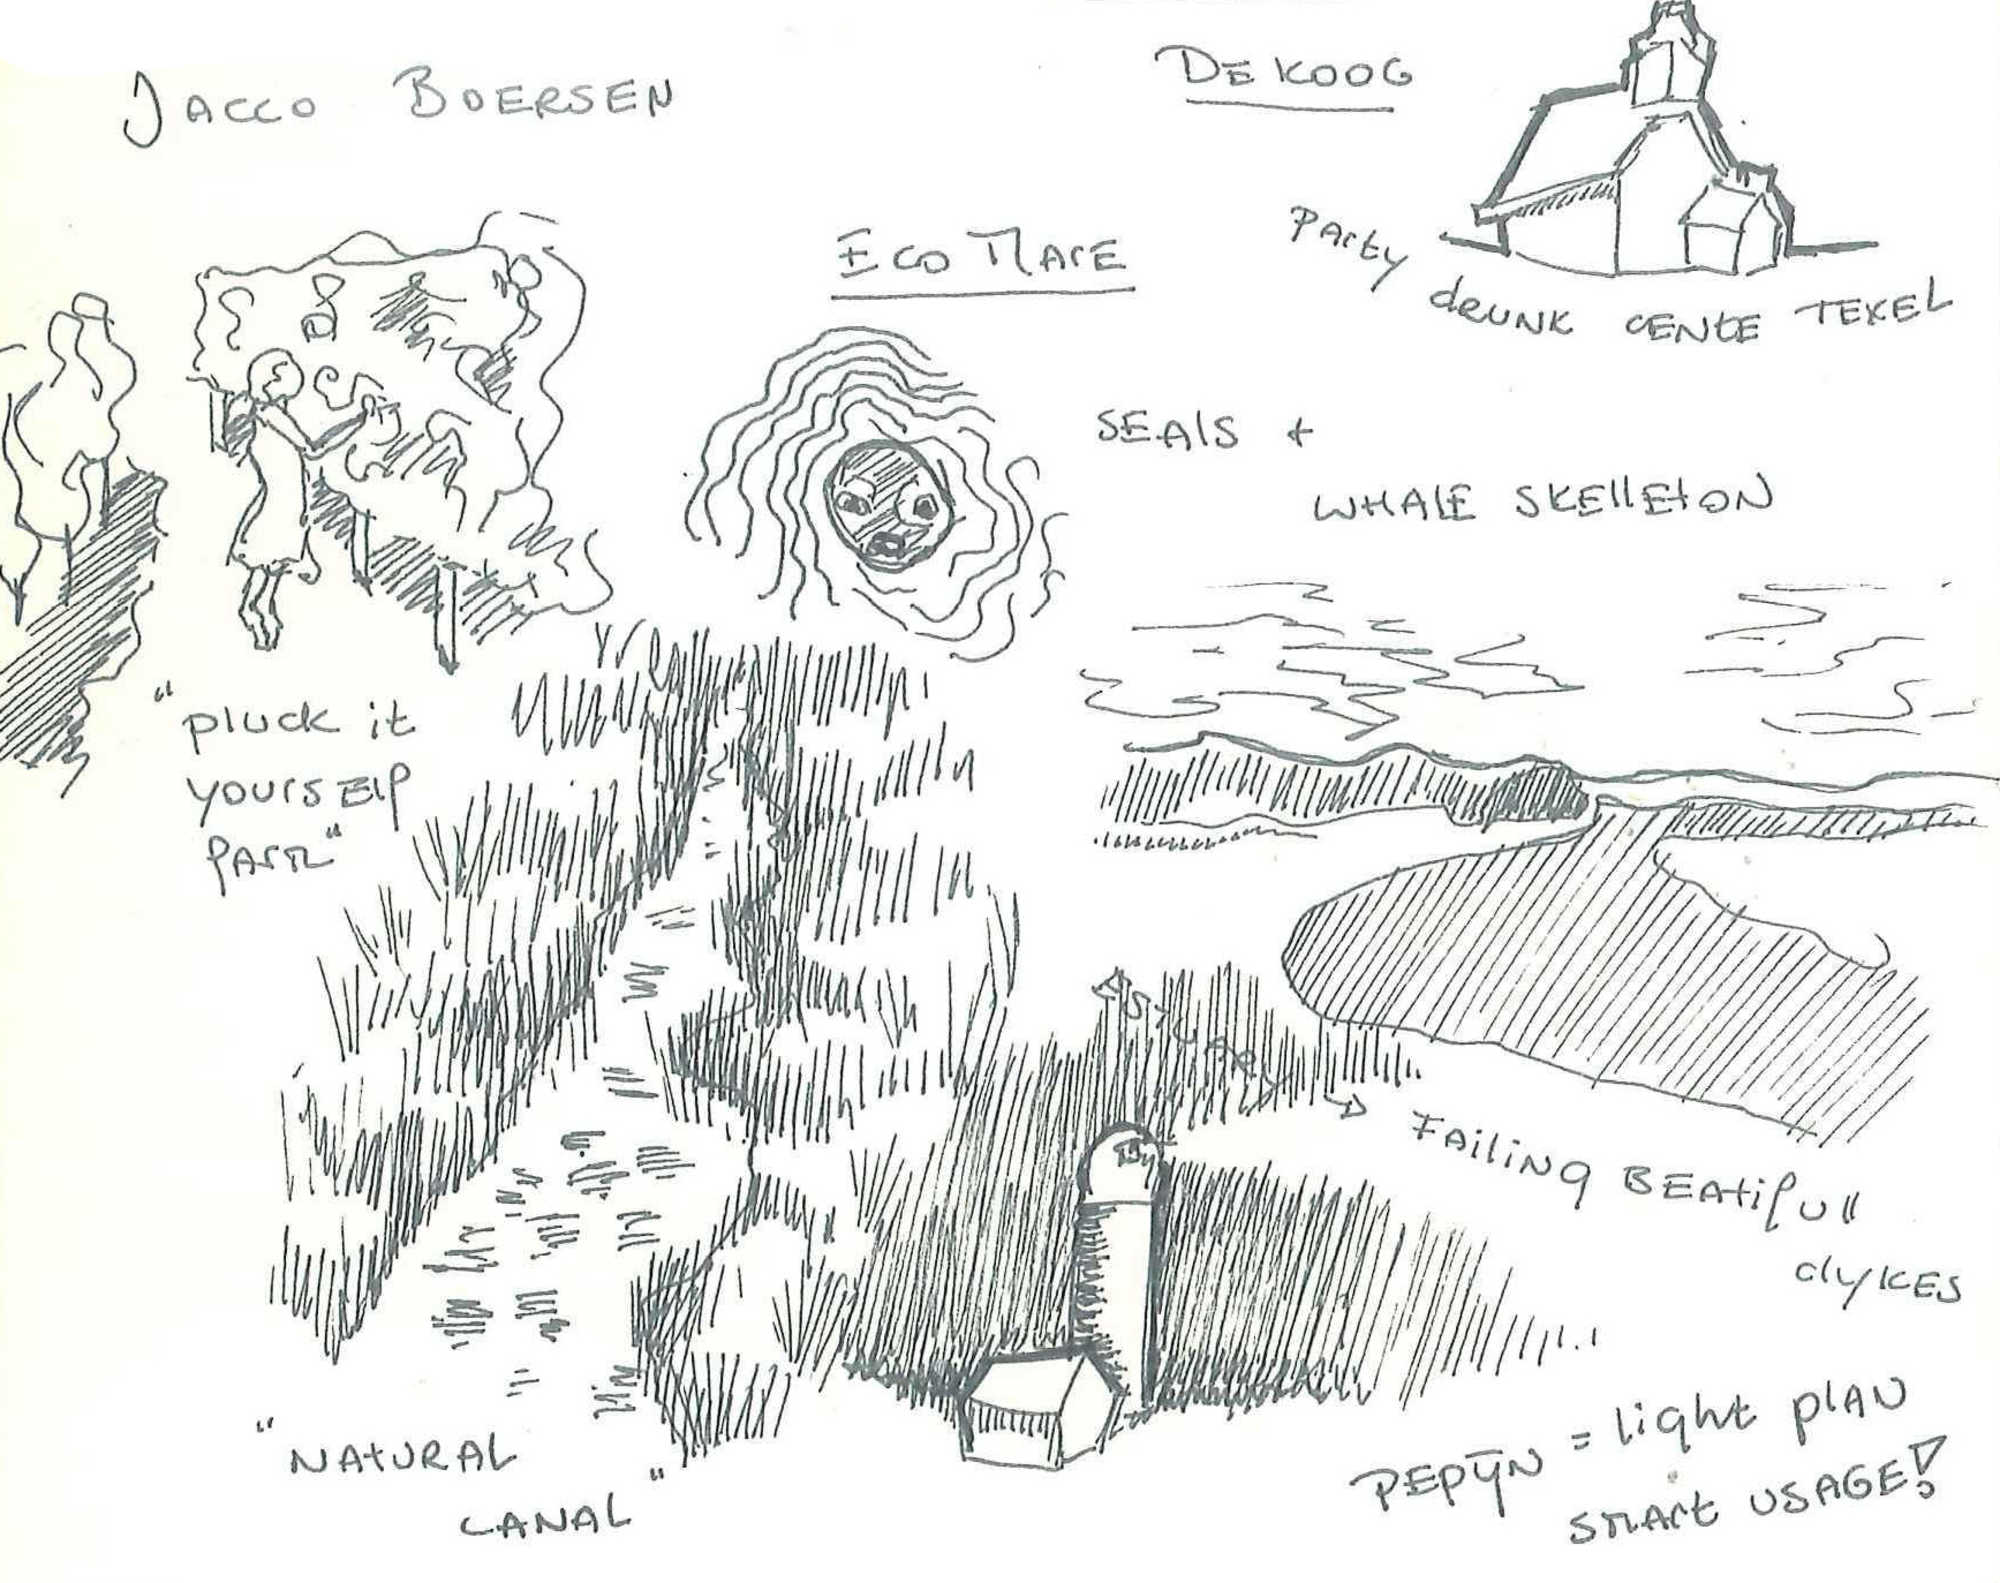 JACCO BOERSEN
DE KOOG
Party
drUNK CENtE TEXEL
ECO MarE
SEAlS +
WHALE SKEllEtON
"pluck it
yoursElf
parm"
EStuary
Failing BEAtifull
dyKES
"NAtURAL
CANAL"
PEPIJN = light plAN
smart USAGE!